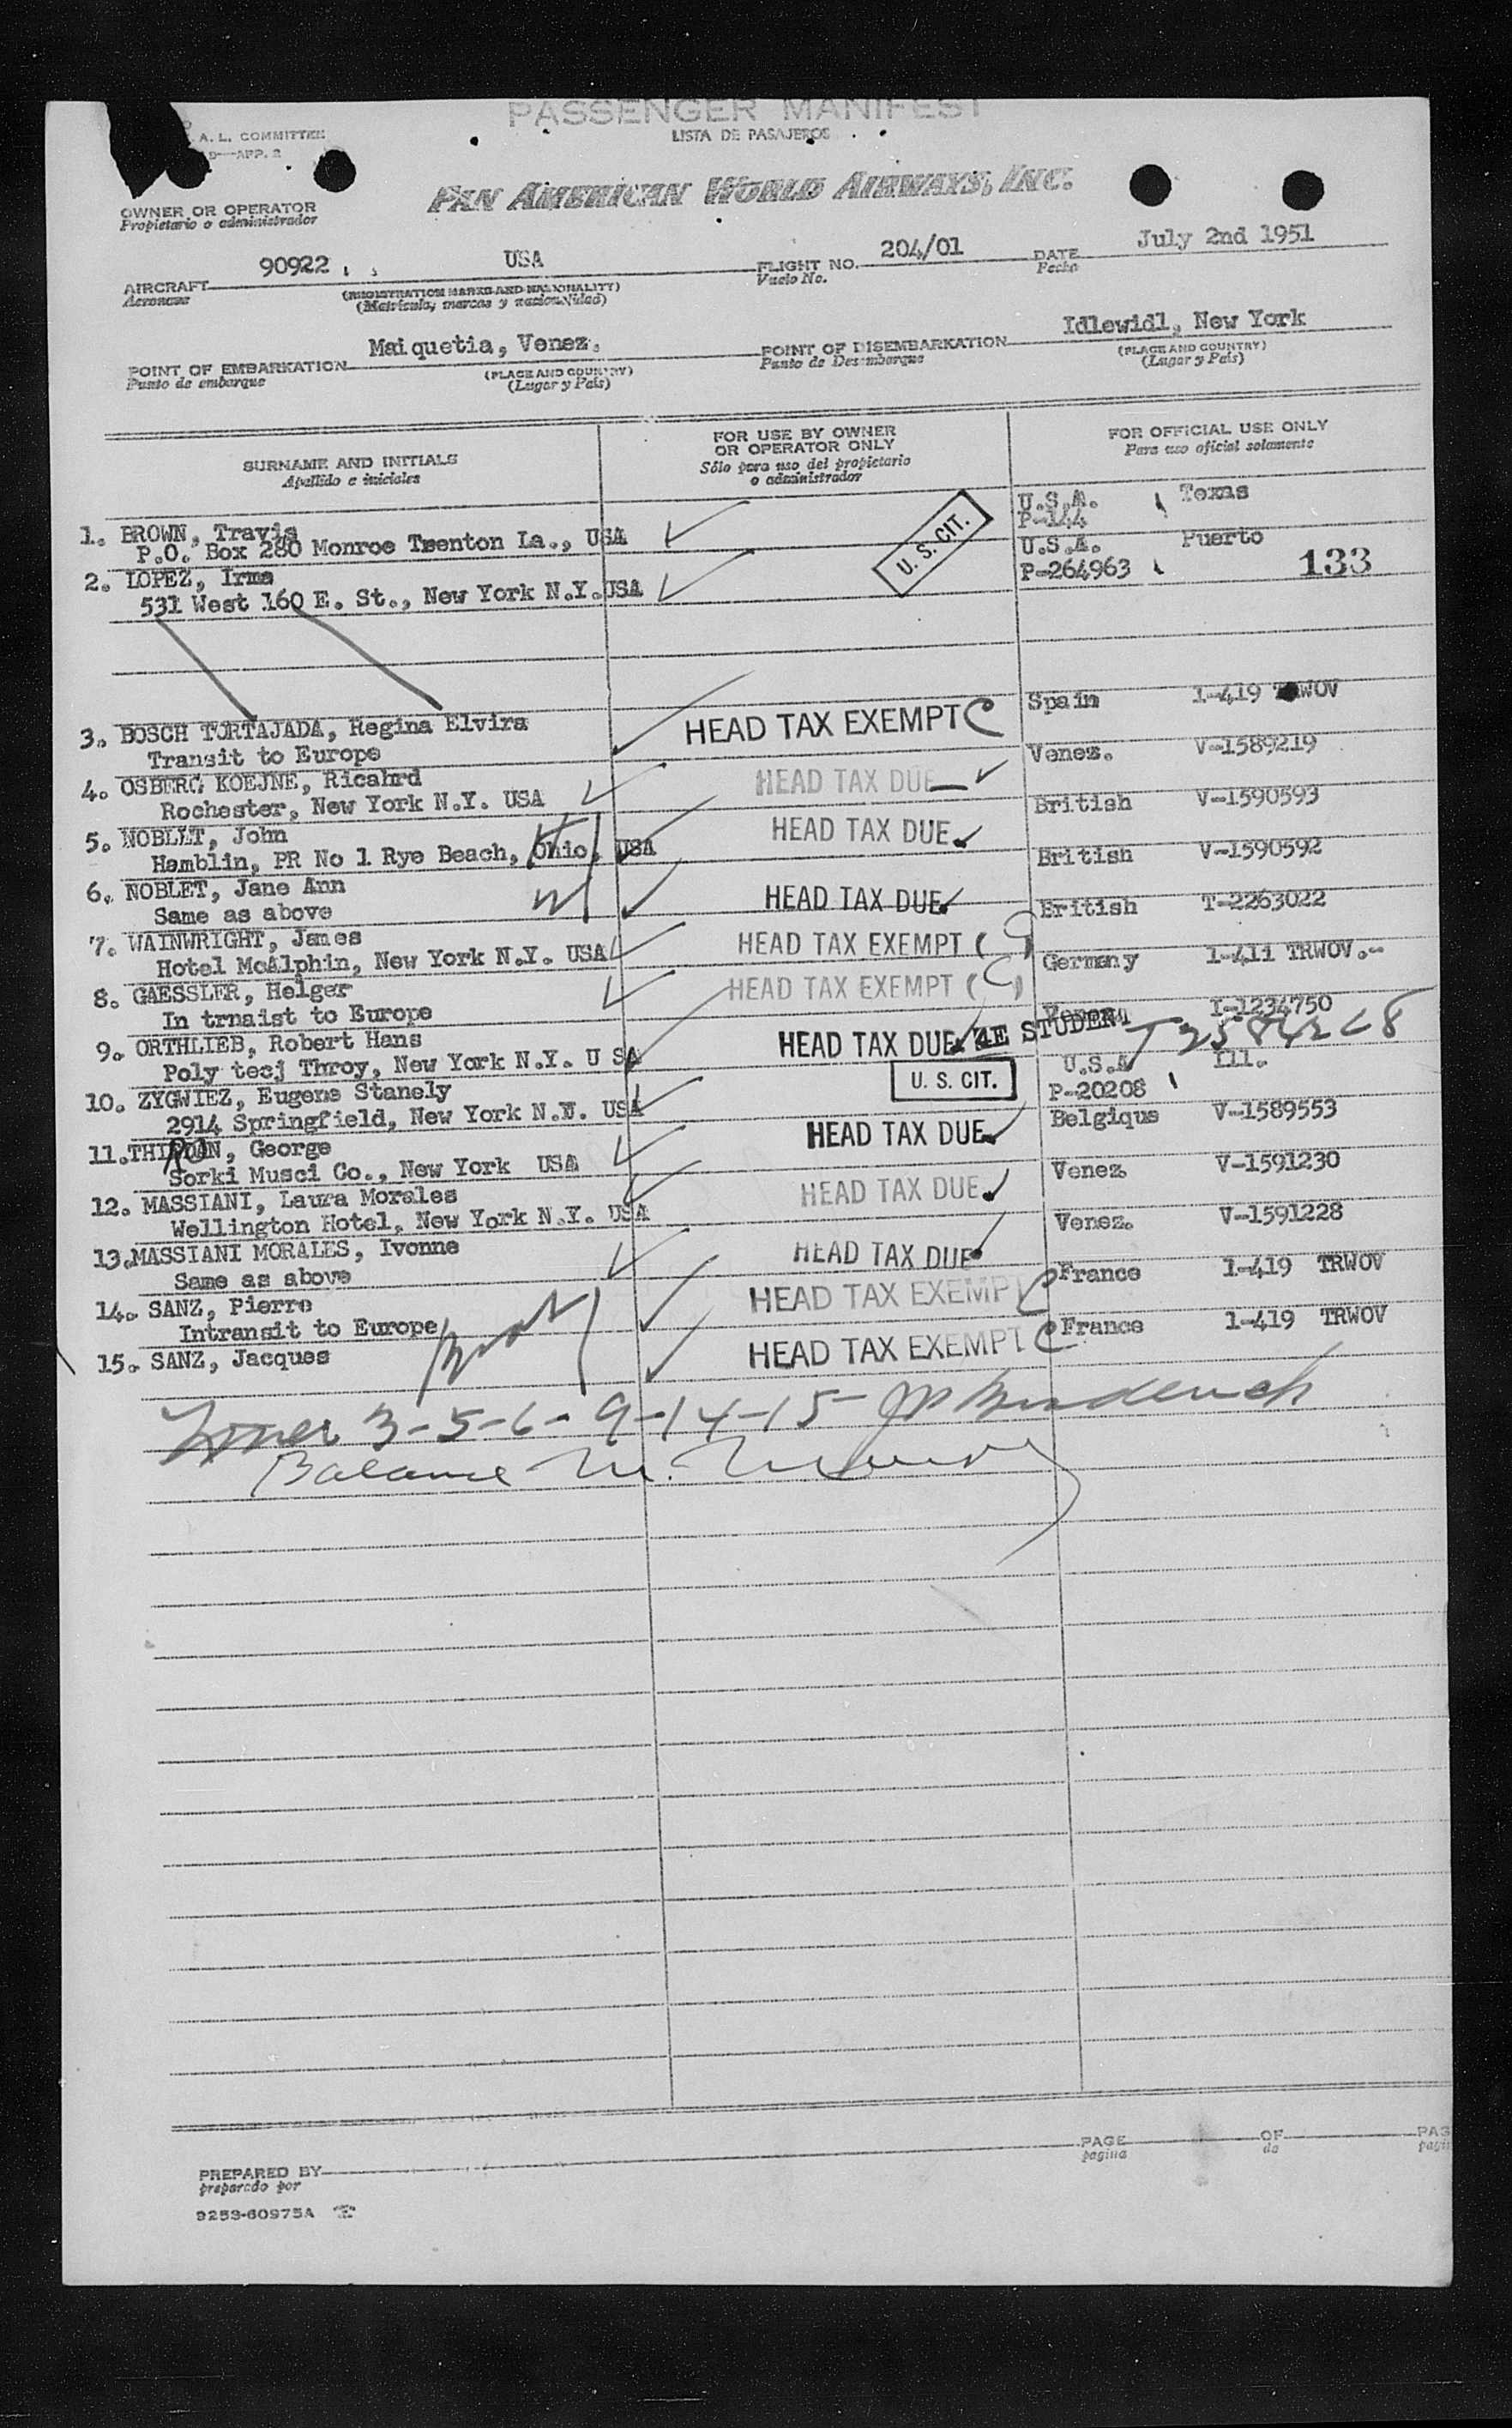 PASSENGER MANIFEST
LISTA DE PASAJEROS
A. L. COMMITTEE
APP. 2
PAN AMERICAN WORLD AIRWAYS, INC.
OWNER OR OPERATOR
Propietario o administrador
AIRCRAFT 90922 USA FLIGHT NO. 204/01 DATE July 2nd 1951
Aeronave (REGISTRATION MARKS AND NATIONALITY) Vuelo No. Fecha
(Matrícula, marcas y nacionalidad)
POINT OF EMBARKATION Maiquetia, Venez. POINT OF DISEMBARKATION Idlewidl, New York
Punto de embarque (PLACE AND COUNTRY) Punto de Desembarque (PLACE AND COUNTRY)
(Lugar y País) (Lugar y País)
SURNAME AND INITIALS
Apellido e iniciales
FOR USE BY OWNER
OR OPERATOR ONLY
Sólo para uso del propietario
o administrador
FOR OFFICIAL USE ONLY
Para uso oficial solamente
1. BROWN, Travis U.S.A. Texas
P.O. Box 280 Monroe Trenton La., USA P-144
U. S. CIT.
2. LOPEZ, Irma U.S.A. Puerto
531 West 160 E. St., New York N.Y. USA P-264963 133
3. BOSCH TORTAJADA, Regina Elvira HEAD TAX EXEMPT Spain 1-419 TRWOV
Transit to Europe
4. OSBERG KOEJNE, Ricahrd HEAD TAX DUE Venez. V-1589219
Rochester, New York N.Y. USA
5. NOBLET, John HEAD TAX DUE British V-1590593
Hamblin, PR No 1 Rye Beach, Ohio, USA
6. NOBLET, Jane Ann HEAD TAX DUE British V-1590592
Same as above
7. WAINWRIGHT, James HEAD TAX EXEMPT British T-2263022
Hotel McAlphin, New York N.Y. USA
8. GAESSLER, Helger HEAD TAX EXEMPT Germany 1-411 TRWOV.--
In trnaist to Europe
9. ORTHLIEB, Robert Hans HEAD TAX DUE 4E STUDENT Venez. I-1234750
Poly tecj Throy, New York N.Y. U SA
10. ZYGWIEZ, Eugene Stanely U. S. CIT. U.S.A Ill.
2914 Springfield, New York N.Y. USA P-20208
11. , George HEAD TAX DUE Belgique V-1589553
Sorki Musci Co., New York USA
12. MASSIANI, Laura Morales HEAD TAX DUE Venez. V-1591230
Wellington Hotel, New York N.Y. USA
13. MASSIANI MORALES, Ivonne HEAD TAX DUE Venez. V-1591228
Same as above
14. SANZ, Pierre HEAD TAX EXEMPT France 1-419 TRWOV
Intransit to Europe
15. SANZ, Jacques HEAD TAX EXEMPT France 1-419 TRWOV
3-5-6-9-14-15-
Balance
PREPARED BY PAGE OF PAG
preparado por pagina de pagin
9253-60975A